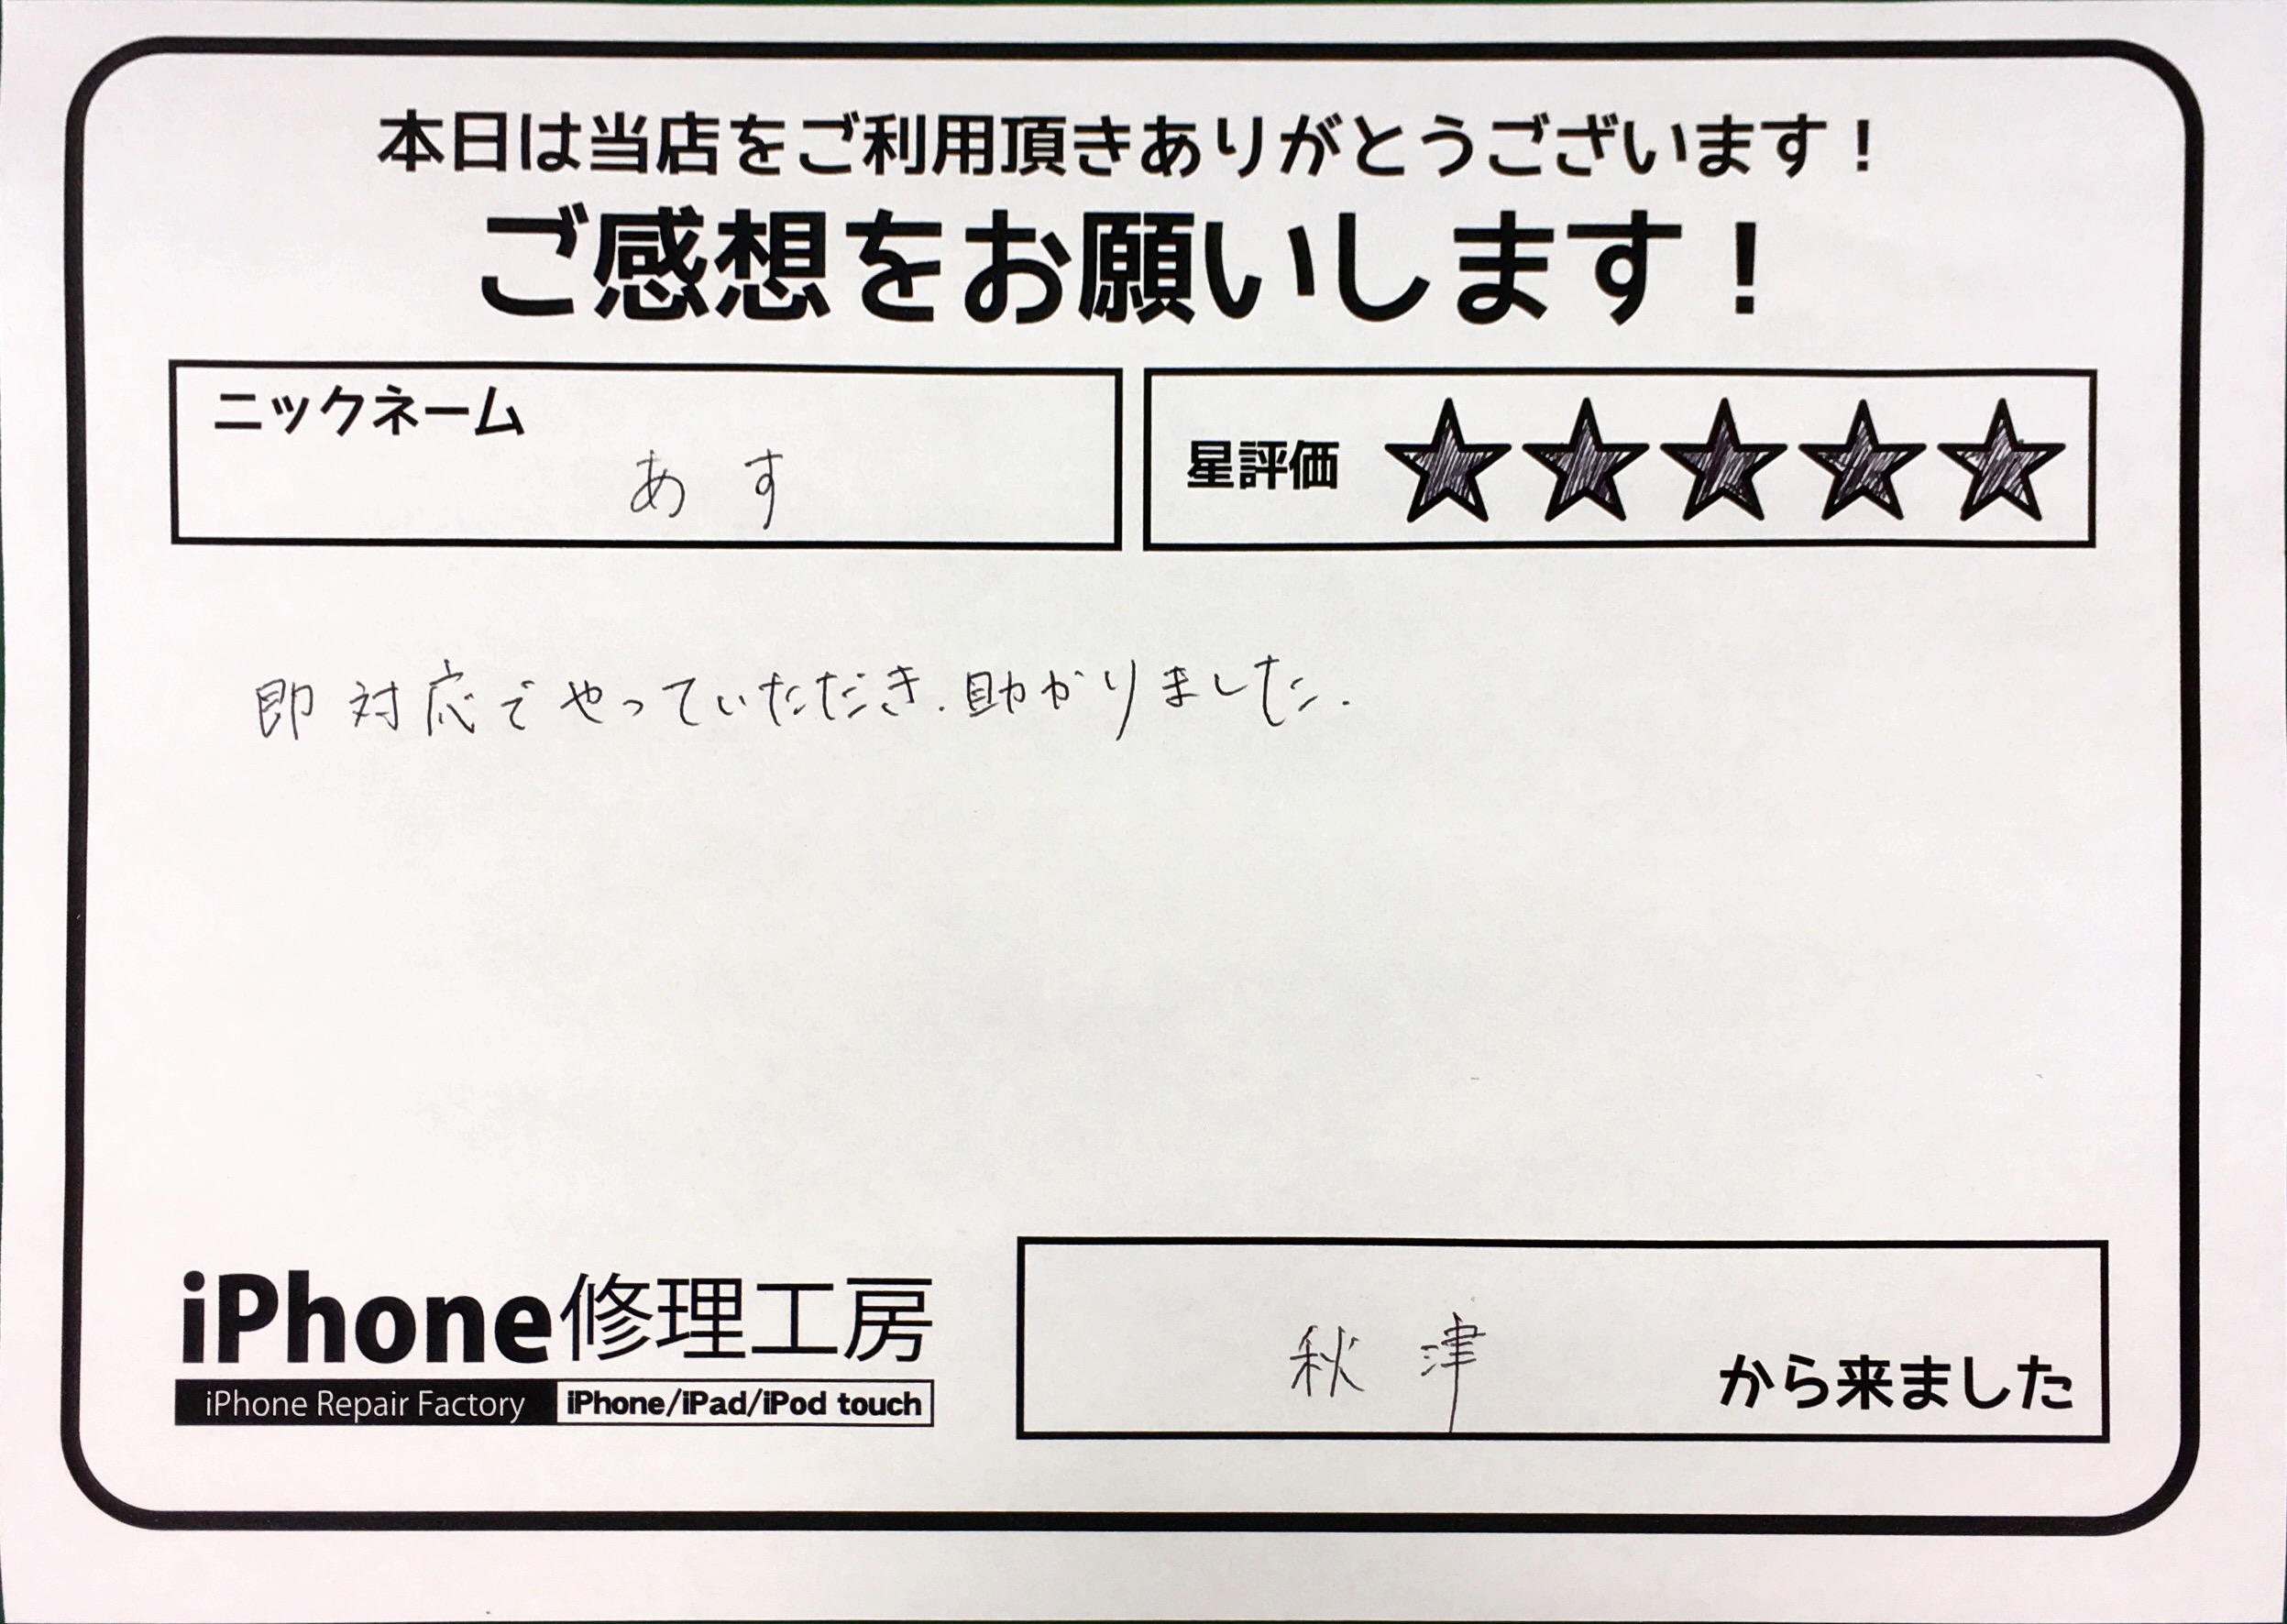 本日は当店をご利用頂きありがとうございます！
ご感想をお願いします！
ニックネーム
あす
星評価 ★★★★★
即対応でやっていただき、助かりました。
iPhone修理工房
iPhone Repair Factory iPhone/iPad/iPod touch
秋津 から来ました